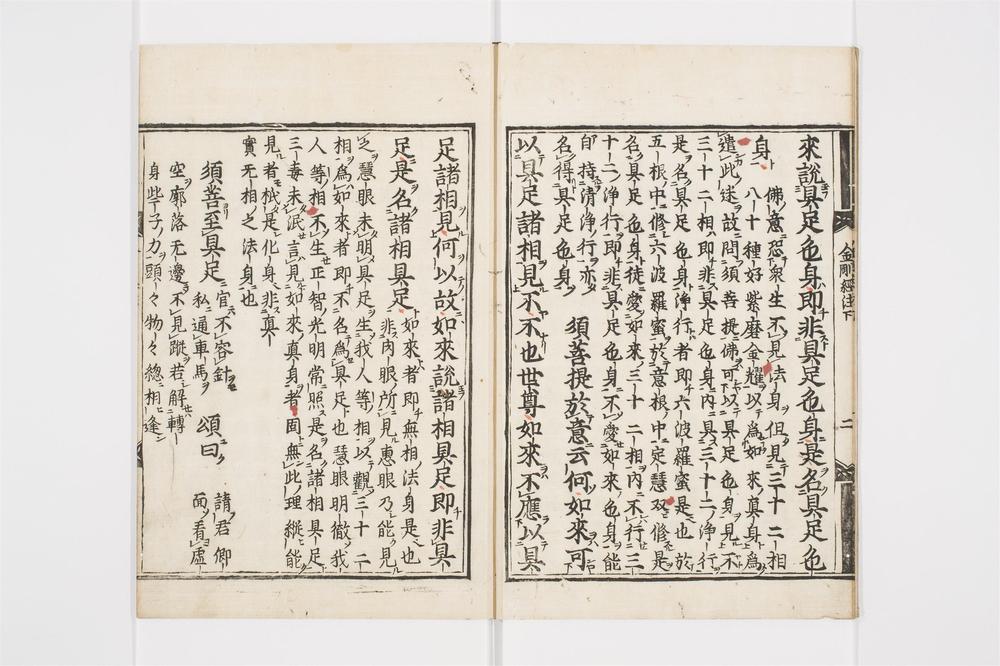 金剛經注下
二
來說具足色身即非具足色身是名具足色
身
佛意恐衆生不見法身但見三十二相
八十種好紫磨金耀以爲如來真身爲
遣此迷故問須菩提佛可以具足色身見不
三十二相即非具足色身内具三十二淨行
是名具足色身淨行者即六波羅蜜是也於
五根中修六波羅蜜於意根中定慧双修是
名具足色身徒愛如來三十二相内不行三
十二淨行即非具足色身不愛如來色身能
自持清淨行亦
名得具足色身
須菩提於意云何如來可
以具足諸相見不不也世尊如來不應以具
足諸相見何以故如來說諸相具足即非具
足是名諸相具足
如來者即無相法身是也
非肉眼所見惠眼乃能見
之慧眼未明具足生我人等相以觀三十二
相爲如來者即不名爲具足也慧眼明徹我
人等相不生正智光明常照是名諸相具足
三毒未泯言見如來真身者固無此理縱能
見者秖是化身非真
實无相之法身也
須菩至具足
官不容針
私通車馬
頌曰
請君仰
面看虛
空廓落无邊不見蹤若解轉
身些子力頭々物々總相逢